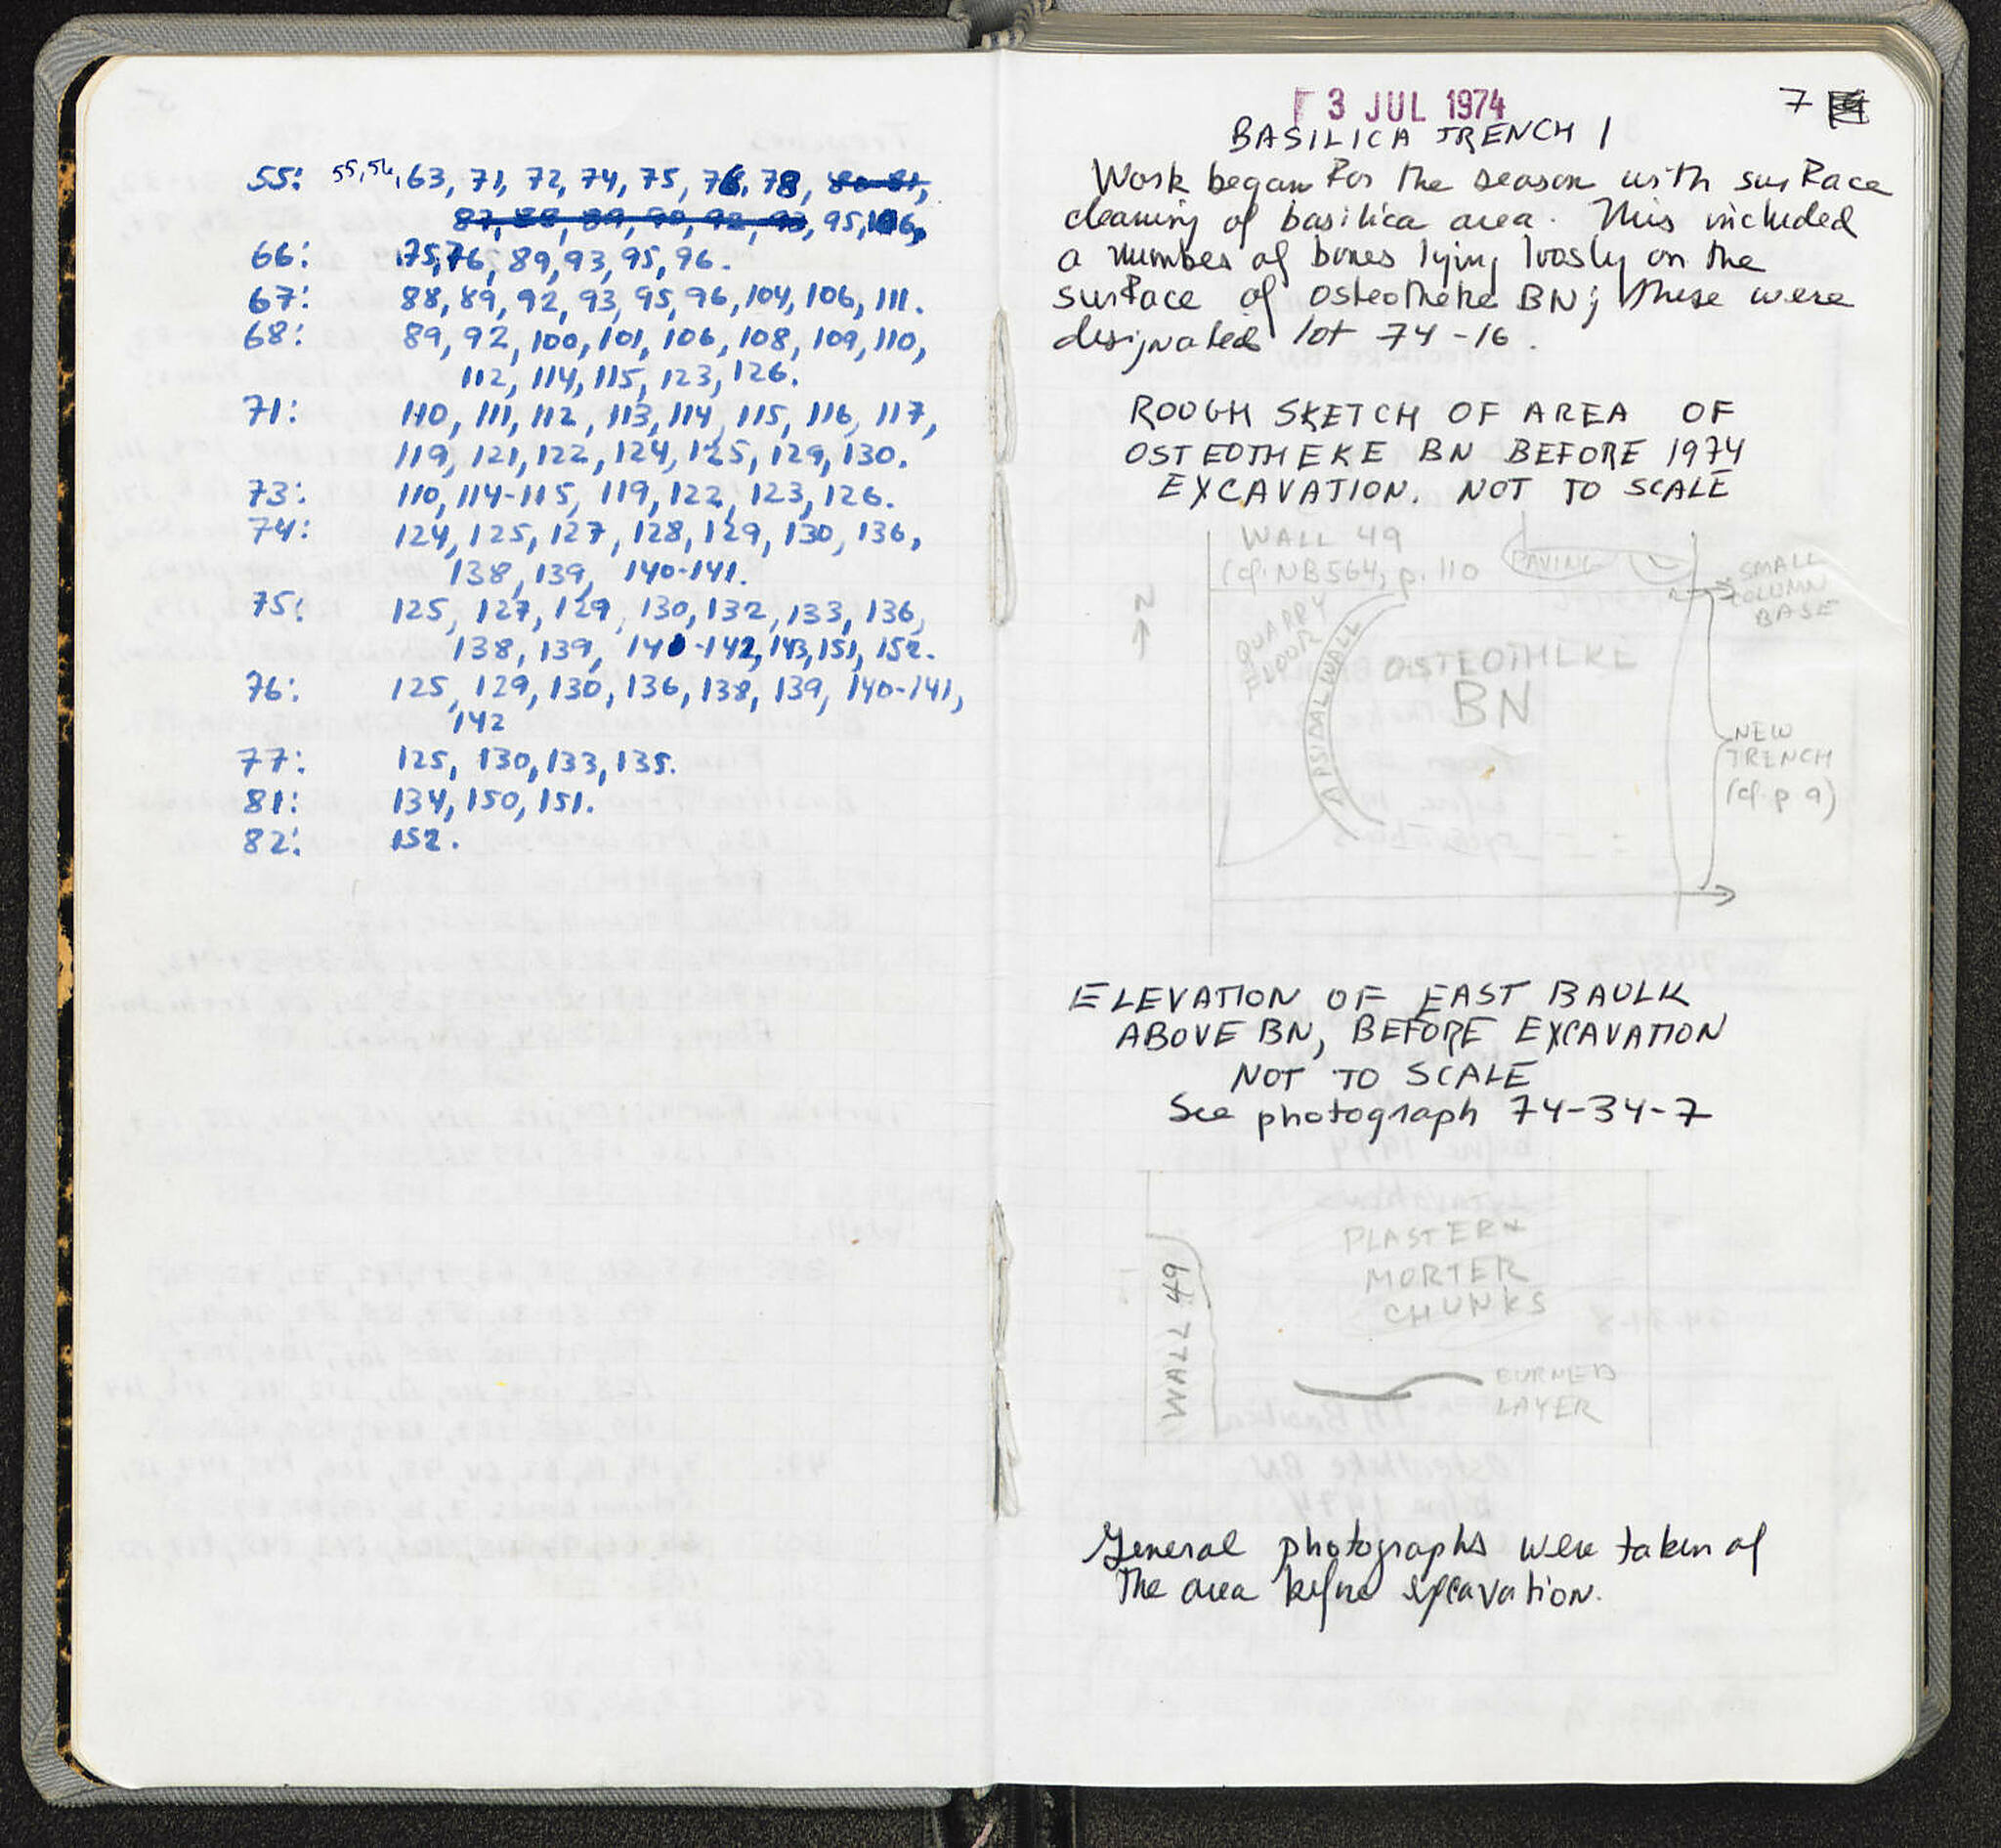 55: 55,56, 63, 71, 72, 74, 75, 76, 78, 80-81,
87, 88, 89, 90, 92, 93, 95, 106,
66: 75, 76, 89, 93, 95, 96.
67: 88, 89, 92, 93, 95, 96, 104, 106, 111.
68: 89, 92, 100, 101, 106, 108, 109, 110,
112, 114, 115, 123, 126.
71: 110, 111, 112, 113, 114, 115, 116, 117,
119, 121, 122, 124, 125, 129, 130.
73: 110, 114-115, 119, 122, 123, 126.
74: 124, 125, 127, 128, 129, 130, 136,
138, 139, 140-141.
75: 125, 127, 129, 130, 132, 133, 136,
138, 139, 140-142, 143, 151, 152.
76: 125, 129, 130, 136, 138, 139, 140-141,
142
77: 125, 130, 133, 135.
81: 134, 150, 151.
82: 152.
3 JUL 1974
7
BASILICA TRENCH 1
Work began for the season with surface
cleaning of basilica area. This included
a number of bones lying loosly on the
surface of osteotheke BN; these were
designated lot 74-16.
ROUGH SKETCH OF AREA OF
OSTEOTHEKE BN BEFORE 1974
EXCAVATION. NOT TO SCALE
WALL 49
(cf. NB564, p. 110
PAVING
SMALL
COLUMN
BASE
N
QUARRY
FLOOR
APSIDAL WALL
OSTEOTHEKE
BN
NEW
TRENCH
(cf. p 9)
ELEVATION OF EAST BAULK
ABOVE BN, BEFORE EXCAVATION
NOT TO SCALE
See photograph 74-34-7
WALL 49
PLASTER +
MORTER
CHUNKS
BURNED
LAYER
General photographs were taken of
the area before excavation.